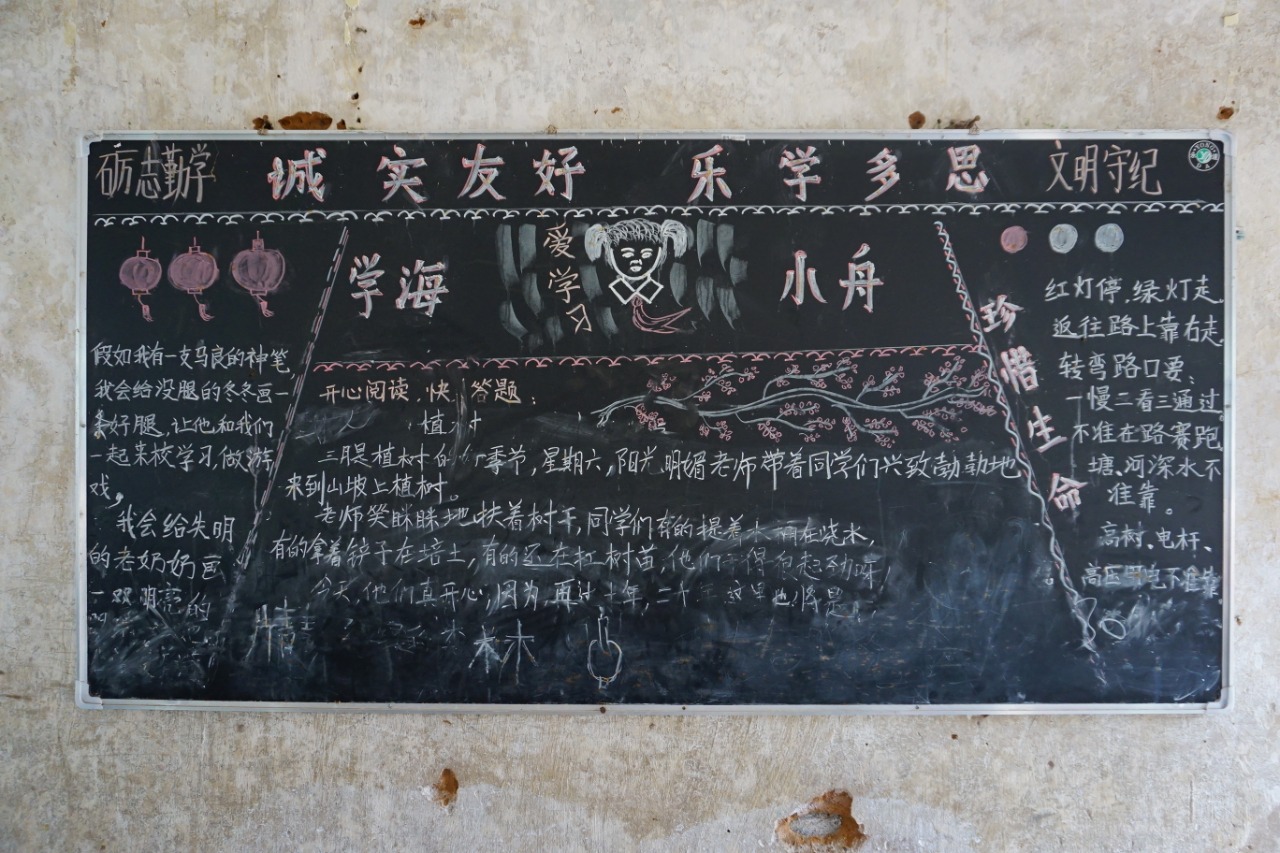 砺志勤学 诚实友好 乐学多思 文明守纪
学海 爱学习 小舟
假如我有一支马良的神笔
我会给没腿的冬冬画一
条好腿,让他和我们
一起来校学习,做游
戏,
我会给失明
的老奶奶画
一双明亮的
开心阅读.快 答题:
植
三月是植树 季节,星期六,阳光明媚老师带着同学们兴致勃勃地
来到山坡上植树。
老师笑眯眯地扶着树干,同学们有的提着水桶在浇水,
有的拿着铲子在培土,有的还在扛树苗,他们干得很起劲呀
今天,他们真开心,因为,再过十年,二十 这里也将是
精
林
珍惜生命
红灯停.绿灯走
返往路上靠右走
转弯路口要、
一慢二看三通过
不准在路赛跑
塘、河深水不
准靠。
高树、电杆、
高压 电不准靠